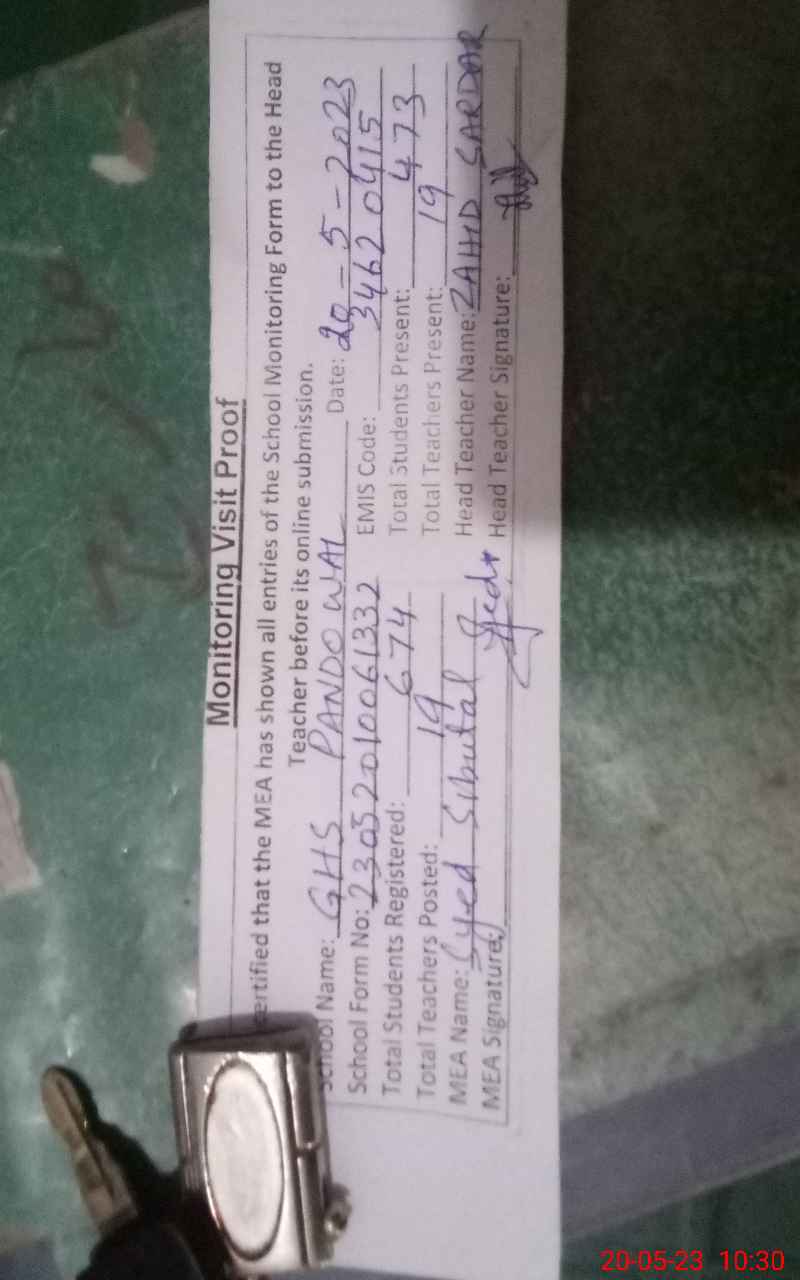 Monitoring Visit Proof
ertified that the MEA has shown all entries of the School Monitoring Form to the Head
Teacher before its online submission.
School Name: GHS PANDOWAL Date: 20-5-2023
School Form No: 23052010061332 EMIS Code: 34620415
Total Students Registered: 674 Total Students Present: 473
Total Teachers Posted: 19 Total Teachers Present: 19
MEA Name: Syed Head Teacher Name: ZAHID SARDAR
MEA Signature: Head Teacher Signature:
20-05-23 10:30